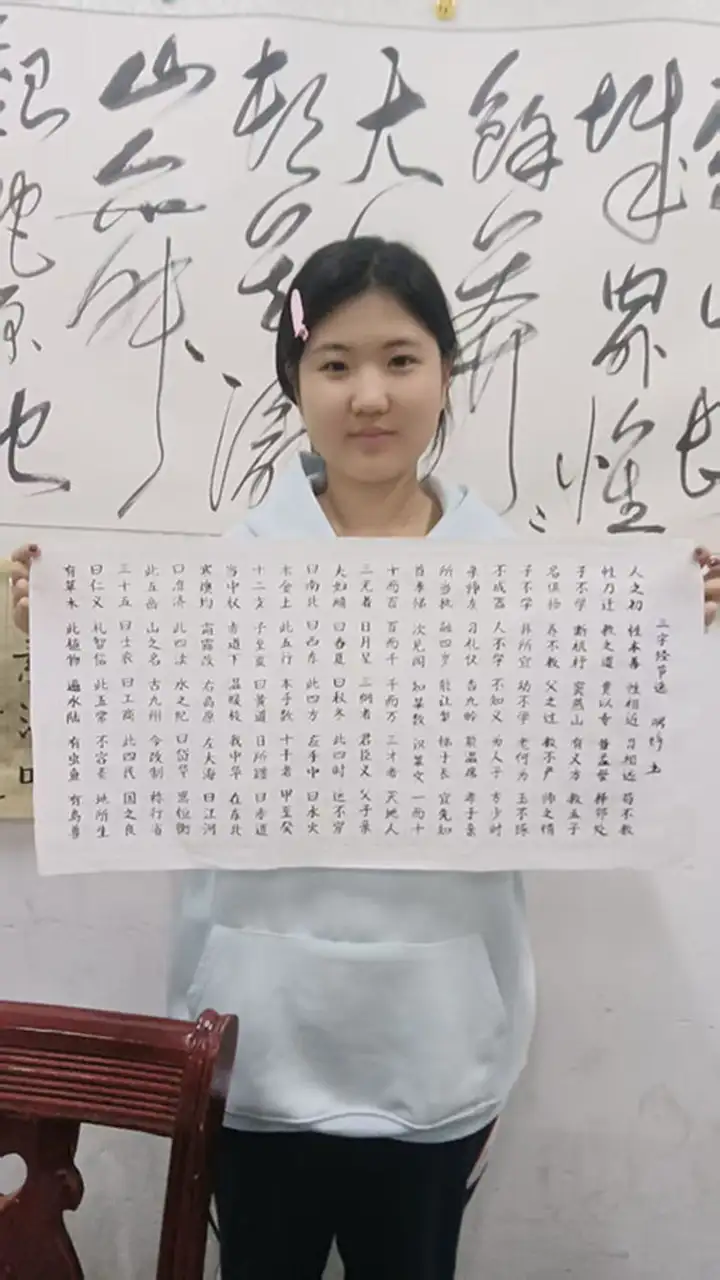 长
城 惟
馀莽
大
顿失滔
山舞
原也
三字经节选
人之初 性本善 性相近 习相远 苟不教
性乃迁 教之道 贵以专 昔孟母 择邻处
子不学 断机杼 窦燕山 有义方 教五子
名俱扬 养不教 父之过 教不严 师之惰
子不学 非所宜 幼不学 老何为 玉不琢
不成器 人不学 不知义 为人子 方少时
亲师友 习礼仪 香九龄 能温席 孝于亲
所当执 融四岁 能让梨 悌于长 宜先知
首孝悌 次见闻 知某数 识某文 一而十
十而百 百而千 千而万 三才者 天地人
三光者 日月星 三纲者 君臣义 父子亲
夫妇顺 曰春夏 曰秋冬 此四时 运不穷
曰南北 曰西东 此四方 应乎中 曰水火
木金土 此五行 本乎数 十干者 甲至癸
十二支 子至亥 曰黄道 日所躔 曰赤道
当中权 赤道下 温暖极 我中华 在东北
寒燠均 霜露改 右高原 左大海 曰江河
曰淮济 此四渎 水之纪 曰岱华 嵩恒衡
此五岳 山之名 古九州 今改制 称行省
三十五 曰士农 曰工商 此四民 国之良
曰仁义 礼智信 此五常 不容紊 地所生
有草木 此植物 遍水陆 有虫鱼 有鸟兽